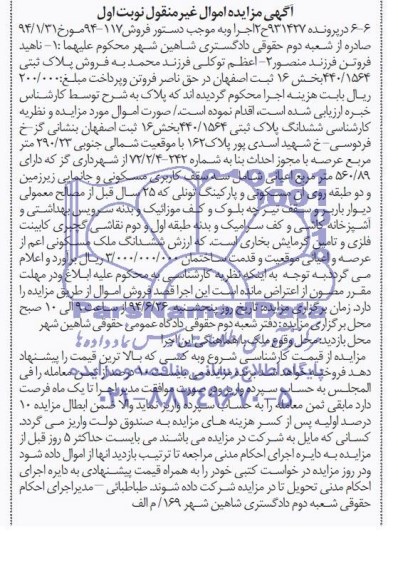 آگهی مزایده اموال غیر منقول نوبت اول
۶-۶ در پرونده ۹۳۱۴۲۷ ح۲اجرا وبه موجب دستور فروش ۱۱۷-۹۴مورخ ۹۴/۱/۳۱
صادره از شعبه دوم حقوقی دادگستری شاهین شهر محکوم علیهما :۱- ناهید
فروتن فرزند منصور۲- اعظم توکلی فرزند محمد به فروش پلاک ثبتی
۴۴۰/۱۵۶۴بخش ۱۶ ثبت اصفهان در حق ناصر فروتن وپرداخت مبلغ:۲۰۰/۰۰۰
ریال بابت هزینه اجرا محکوم گردیده اند که پلاک به شرح توسط کارشناس
خبره ارزیابی شده است، اقدام نموده است./ صورت اموال مورد مزایده و نظریه
کارشناسی ششدانگ پلاک ثبتی ۴۴۰/۱۵۶۴بخش۱۶ ثبت اصفهان بنشانی گز-خ
فردوسی-خ شهید اسدی پور پلاک۱۶۲ با موقعیت شمالی جنوبی ۲۹۰/۲۳ متر
مربع عرصه با مجوز احداث بنا به شماره ۲۴۲-۷۲/۲/۴ از شهرداری گز که دارای
۵۶۰/۸۹ متر مربع اعیانی شامل سه سقف کاربری مسکونی و جانمایی زیرزمین
و دو طبقه روی آن مسکونی و پارکینگ تونلی که ۲۵ سال قبل از مصالح معمولی
دیوار باربر و سقف تیرچه بلوک و کف موزائیک و بدنه سرویس بهداشتی و
آشپزخانه کاشی و کف سرامیک و بدنه طبقه اول و دوم نقاشی گچبری کابینت
فلزی و تامین گرمایش بخاری است. که ارزش ششدانگ ملک مسکونی اعم از
عرصه و اعیانی موقعیت و قدمت ساختمان ۳/۰۰۰/۰۰۰/۰۰۰ ریال برآورد و اعلام
می گردد.به توجه به اینکه نظریه کارشناسی به محکوم علیه ابلاغ ودر مهلت
مقرر مصون از اعتراض مانده است این اجرا قصد فروش اموال از طریق مزایده را
دارد. زمان برگزاری مزایده: تاریخ روز پنجشنبه ۹۴/۶/۲۶ از ساعت ۹ الی ۱۰ صبح
محل برگزاری مزایده: دفتر شعبه دوم حقوقی دادگاه عمومی حقوقی شاهین شهر
محل بازدید: محل وقوع ملک با هماهنگی این اجرا
مزایده از قیمت کارشناسی شروع وبه کسی که بالا ترین قیمت را پیشنهاد
دهد فروخته خواهد شد. برنده مزایده می بایست ۱۰ درصد از ثمن معامله را فی
المجلس به حساب سپرده واریز در صورت موافقت مدیر اجرا تا یک ماه فرصت
دارد مابقی ثمن معامله را به حساب سپرده واریز نماید والا ضمن ابطال مزایده ۱۰
درصد اولیه پس از کسر هزینه های مزایده به صندوق دولت واریز می گردد.
کسانی که مایل به شرکت در مزایده می باشند می بایست حداکثر ۵ روز قبل از
مزایده به دایره اجرای احکام مدنی مراجعه تا ترتیب بازدید انها از اموال داده شود
ودر روز مزایده در خواست کتبی خودر را به همراه قیمت پیشنهادی به دایره اجرای
احکام مدنی تحویل تا در مزایده شرکت داده شوند. طباطبائی -مدیراجرای احکام
حقوقی شعبه دوم دادگستری شاهین شهر ۱۶۹/ م الف